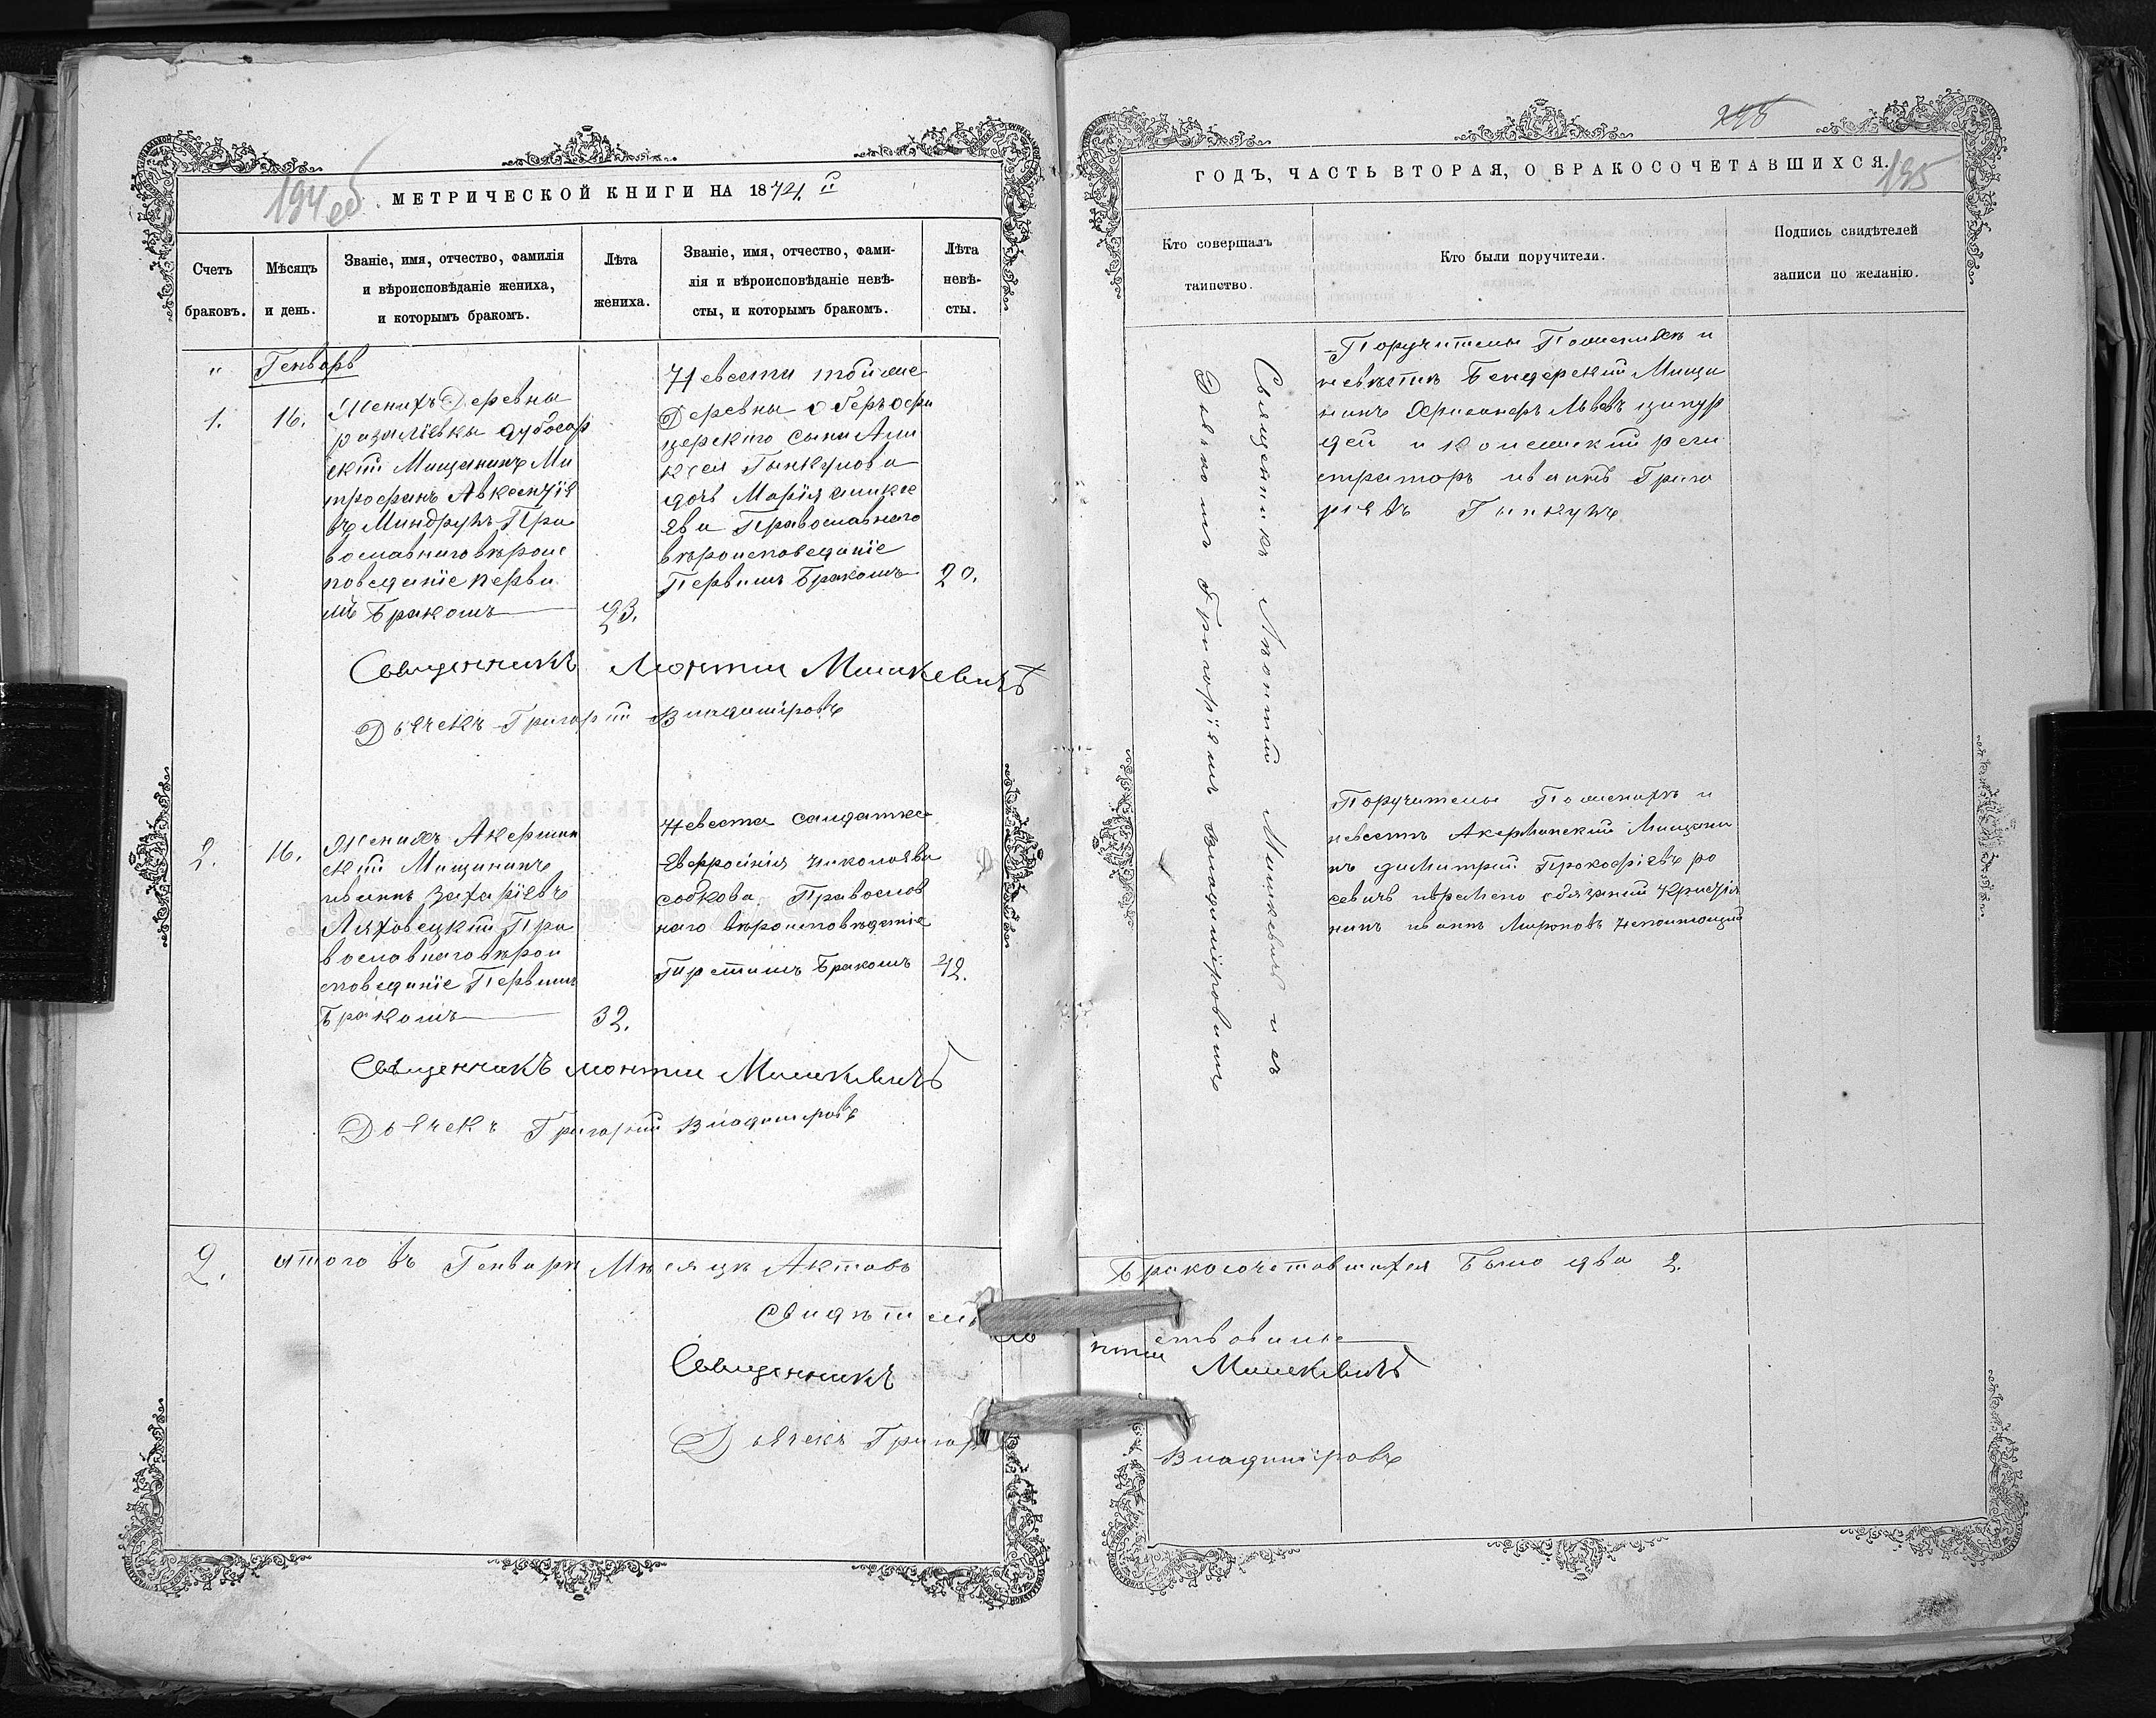 194 об
МЕТРИЧЕСКОЙ КНИГИ НА 1871.
Счетъ браковъ.
Мѣсяцъ и день.
Званіе, имя, отчество, фамилія
и вѣроисповѣданіе жениха,
и которымъ бракомъ.
Лѣта жениха.
Званіе, имя, отчество, фами-
лія и вѣроисповѣданіе невѣ-
сты, и которымъ бракомъ.
Лѣта невѣ-
сты.
" Генварь
1. 16.
Женихъ Деревны
розалиевки дубосар
скій Мищанинъ Ми
трофанъ Авксентіе
въ Миндруль Пра
вославнаго вѣроис
поведаніе первы
мъ Бракомъ
23.
Невеста тойже
Деревны оберъофи
церскаго сына Али
ксея Гынкулова
дочь Марія аликсе
ева Православнаго
вѣроисповеданіе
Первымъ Бракомъ
20.
Священникъ Леонтии Мишкевичъ
Дьячекъ Григорий Владиміровъ
2. 16.
Женихъ Акерман
скій Мищининъ
иванъ Захаріевъ
Ляховецкій Пра
вославнаго вѣрои
споведаніе Первымъ
Бракомъ
32.
Невеста салдатка
Евфросинія николаева
собкова Православ
наго вѣроисповѣданіе
Тиретимъ Бракомъ
42.
Священникъ леонтии Мишкевичъ
Дьячекъ Григорий Владиміровъ
2. итого въ Генварѣ Мѣсяцѣ Актовъ
Свидѣтель
Священникъ
Дьячекъ Григор
195
ГОДЪ, ЧАСТЬ ВТОРАЯ, О БРАКОСОЧЕТАВШИХСЯ.
Кто совершалъ
таинство.
Кто были поручители.
Подпись свидѣтелей
записи по желанію.
Священникъ Леонтій Мишкевичъ и съ
Дьякомъ Григоріемъ владиміровымъ
Поручители По женихѣ и
невѣстѣ Бендерскій Мищи
нинъ Львъ
дей и колежскій реги
страторъ иванъ Григо
ріевъ Гынкулъ
Поручители По женихѣ и
невестѣ Акерманскій Мищани
нъ димитрій Прокофіевъ ро
севичъ обязаний
иванъ Мироновъ
Бракосочетавшихся Было два 2.
ствовали
нтии Мишкевичъ
Владиміровъ